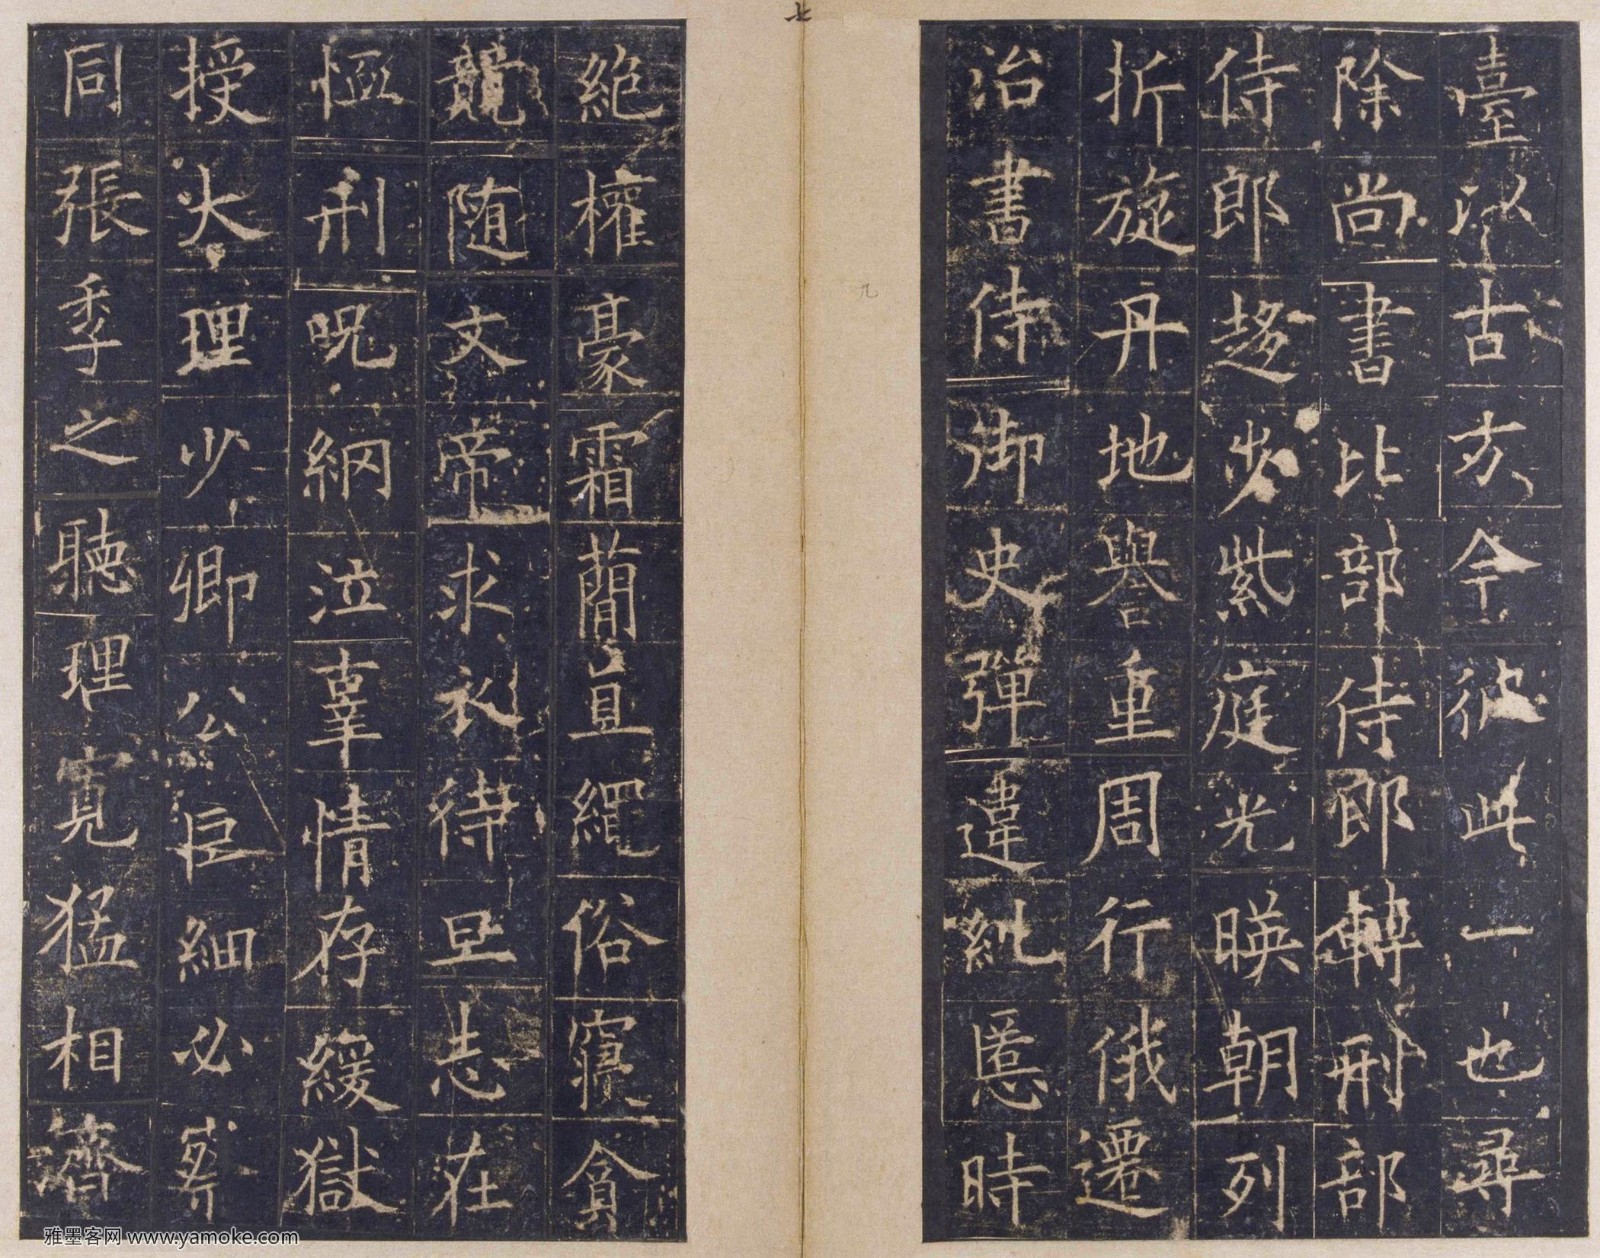 臺以古方今彼此一也尋
除尚書比部侍郎轉刑部
侍郎趍步紫庭光暎朝列
折旋丹地譽重周行俄遷
治書侍御史彈違糺慝時
絶權豪霜簡直繩俗寢貪
競随文帝求衣待旦志在
恤刑呪網泣辜情存緩獄
授大理少卿公巨細必察
同張季之聽理寬猛相濟
九
雅墨客网 www.yamoke.com